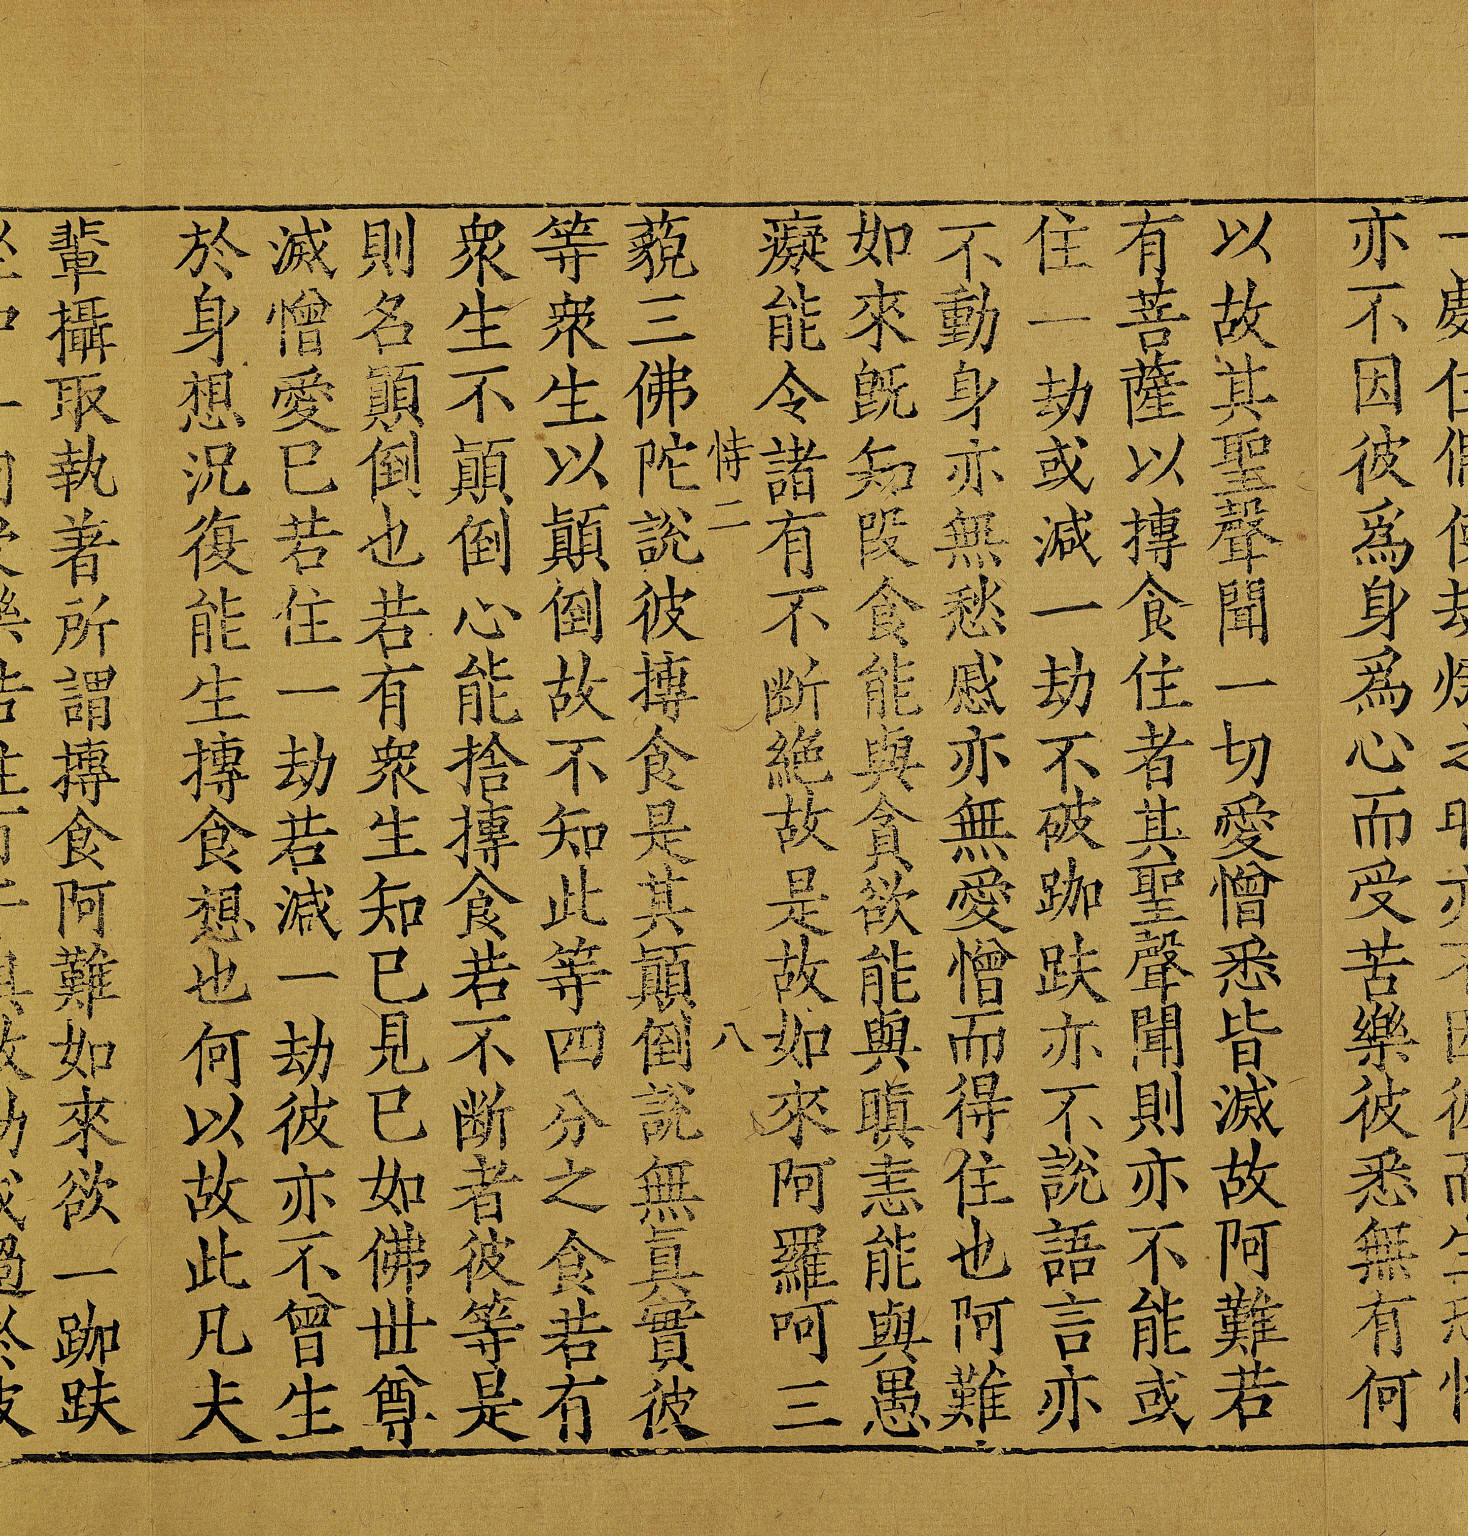 亦不因彼爲身爲心而受苦樂彼悉無有何
以故其聖聲聞一切愛憎悉皆滅故阿難若
有菩薩以摶食住者其聖聲聞則亦不能或
住一劫或減一劫不破跏趺亦不說語言亦
不動身亦無愁慼亦無愛憎而得住也阿難
如來旣知段食能與貪欲能與瞋恚能與愚
癡能令諸有不斷絶故是故如來阿羅呵三
恃二 八
藐三佛陀說彼摶食是其顚倒說無眞實彼
等衆生以顚倒故不知此等四分之食若有
衆生不顚倒心能捨摶食若不斷者彼等是
則名顚倒也若有衆生知已見已如佛世尊
滅憎愛已若住一劫若減一劫彼亦不曾生
於身想況復能生摶食想也何以故此凡夫
輩攝取執著所謂摶食阿難如來欲一跏趺